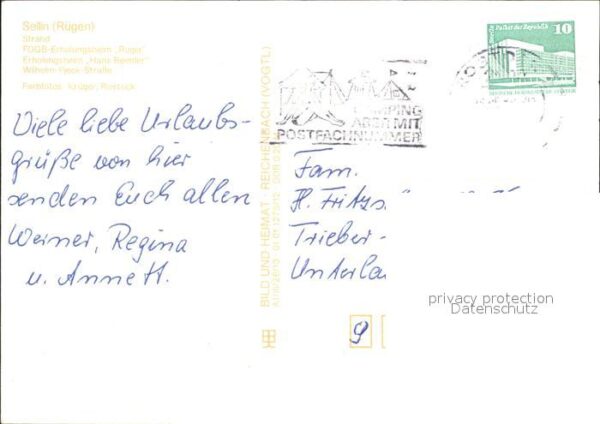 Sellin (Rügen)
Strand
FDGB-Erholungsheim
Erholungsheim "Hans Beimler"
Wilhelm-Pieck-Straße
Farbfotos: Krüger, Rostock
Viele liebe Urlaubs-
grüße von hier
senden Euch allen
Werner, Regina
u. Annett.
BILD UND HEIMAT REICHENBACH (VOGTL)
Berlin Palast der Republik
10
CAMPING
ABER MIT
POSTFACHNUMMER
Fam.
H. Fritzs
Trieber-
Unterla
9
privacy protection
Datenschutz